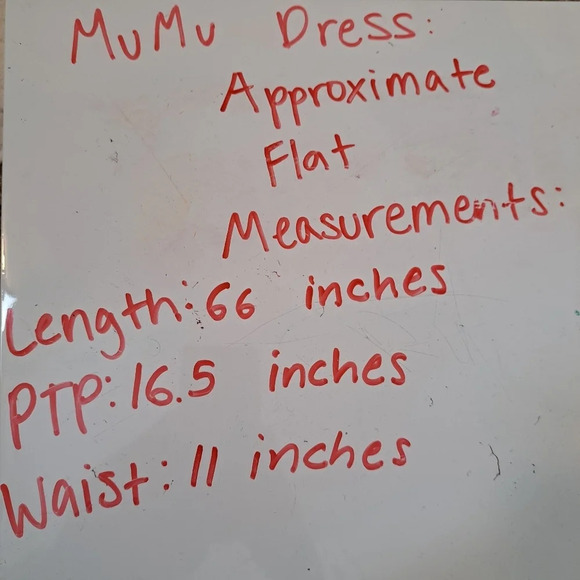 MuMu Dress:
Approximate
Flat
Measurements:
Length: 66 inches
PTP: 16.5 inches
Waist: 11 inches